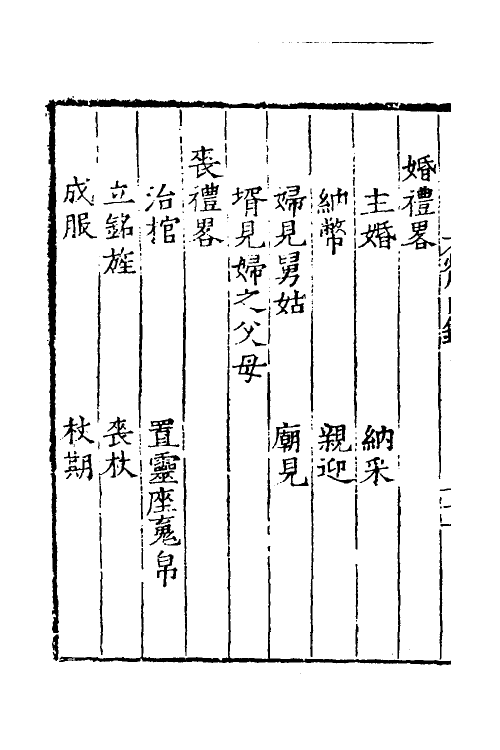 婚禮畧
主婚　納采
納幣　親迎
婦見舅姑　廟見
壻見婦之父母
喪禮畧
治棺　置靈座魂帛
立銘旌　喪杖
成服　杖期